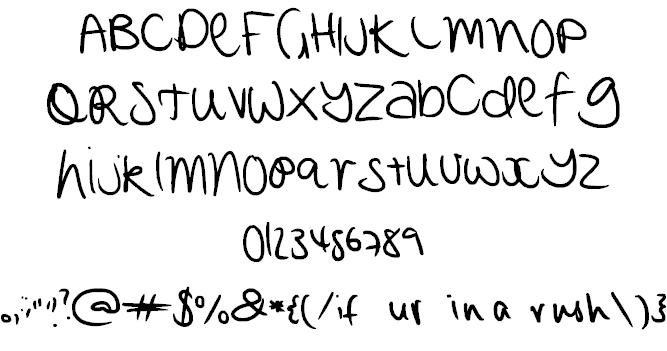 ABCDeFGHIJKLmnOP
QRStUVWXYZabCdefg
hijklmnopqrstuvwxyz
0123456789
.,;:"'!?@#$%%&*{(/if ur in a rush\)}